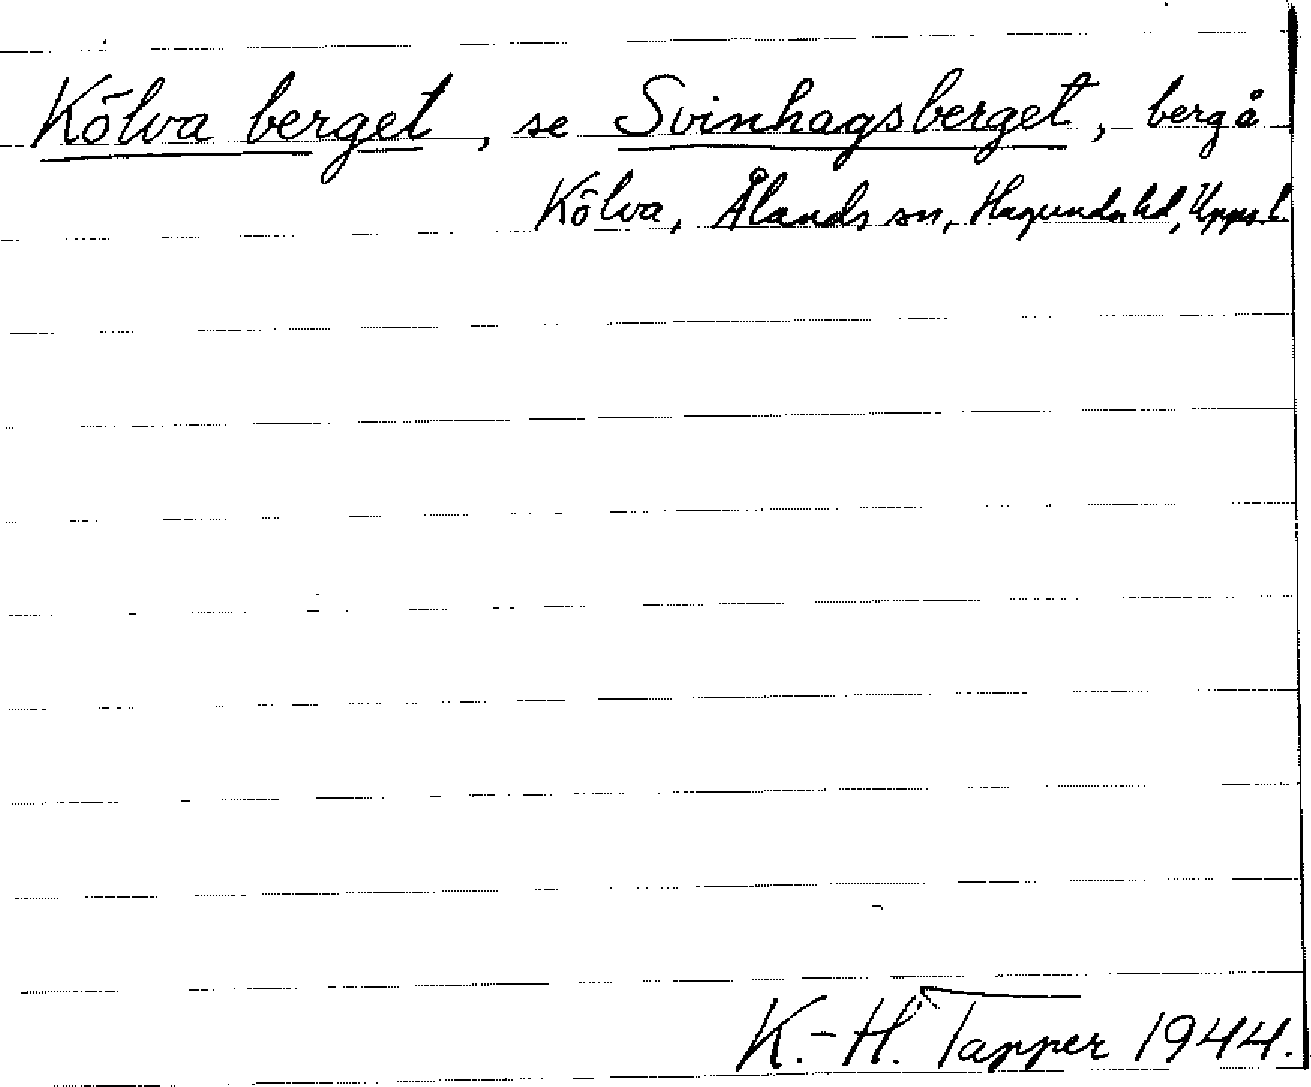 Kölva berget, se Svinhagsberget, berg å
Kölva, Ålands sn, Hagunda hd, Upps. l.
K.-H. Tapper 1944.